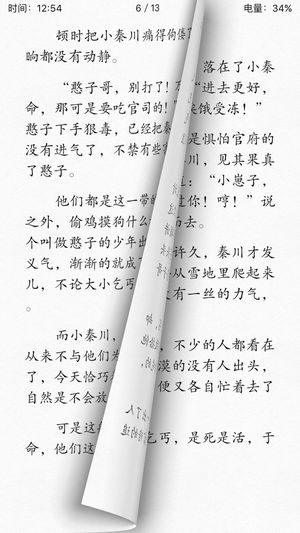 时间：12:54 6 / 13 电量：34%
顿时把小秦川痛得佝偻了
晌都没有动静。
落在了小秦
“憨子哥，别打了！ “进去更好，
命，那可是要吃官司的！” 挨饿受冻！”
憨子下手狠毒，已经把秦 是惧怕官府的
没有进气了，不禁有些 川，见其果真
了憨子。 “小崽子，
他们都是这一带的 过你！哼！”说
之外，偷鸡摸狗什么 去。
个叫做憨子的少年出 许久，秦川才发
义气，渐渐的就成 从雪地里爬起来
儿，不论大小乞丐 有一丝的力气，
。
而小秦川， 不少的人都看在
从来不与他们 漠的没有人出头，
了，今天恰巧 便又各自忙着去了
自然是不会放
可是这 乞丐，是死是活，于
命，他们这